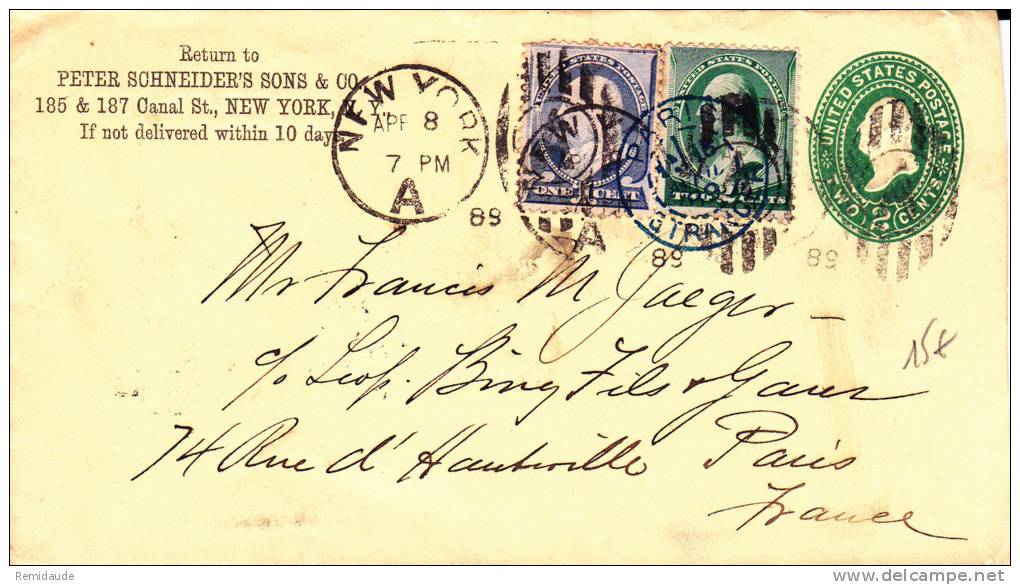 Return to
PETER SCHNEIDER'S SONS & CO
185 & 187 Canal St., NEW YORK, N. Y.
If not delivered within 10 days
NEW YORK
APR 8
7 PM
A
89
UNITED STATES POSTAGE
ONE CENT
NEW
APR
A
89
UNITED STATES POSTAGE
2 2
TWO CENTS
PARIS
ETRANGER
89
UNITED STATES POSTAGE
TWO 2 CENTS
Mr Francis M Jaeger -
c/o Leop. Bing Fils & Gans
74 Rue d'Hauteville Paris
France
15€
Remidaude
delcampe.net